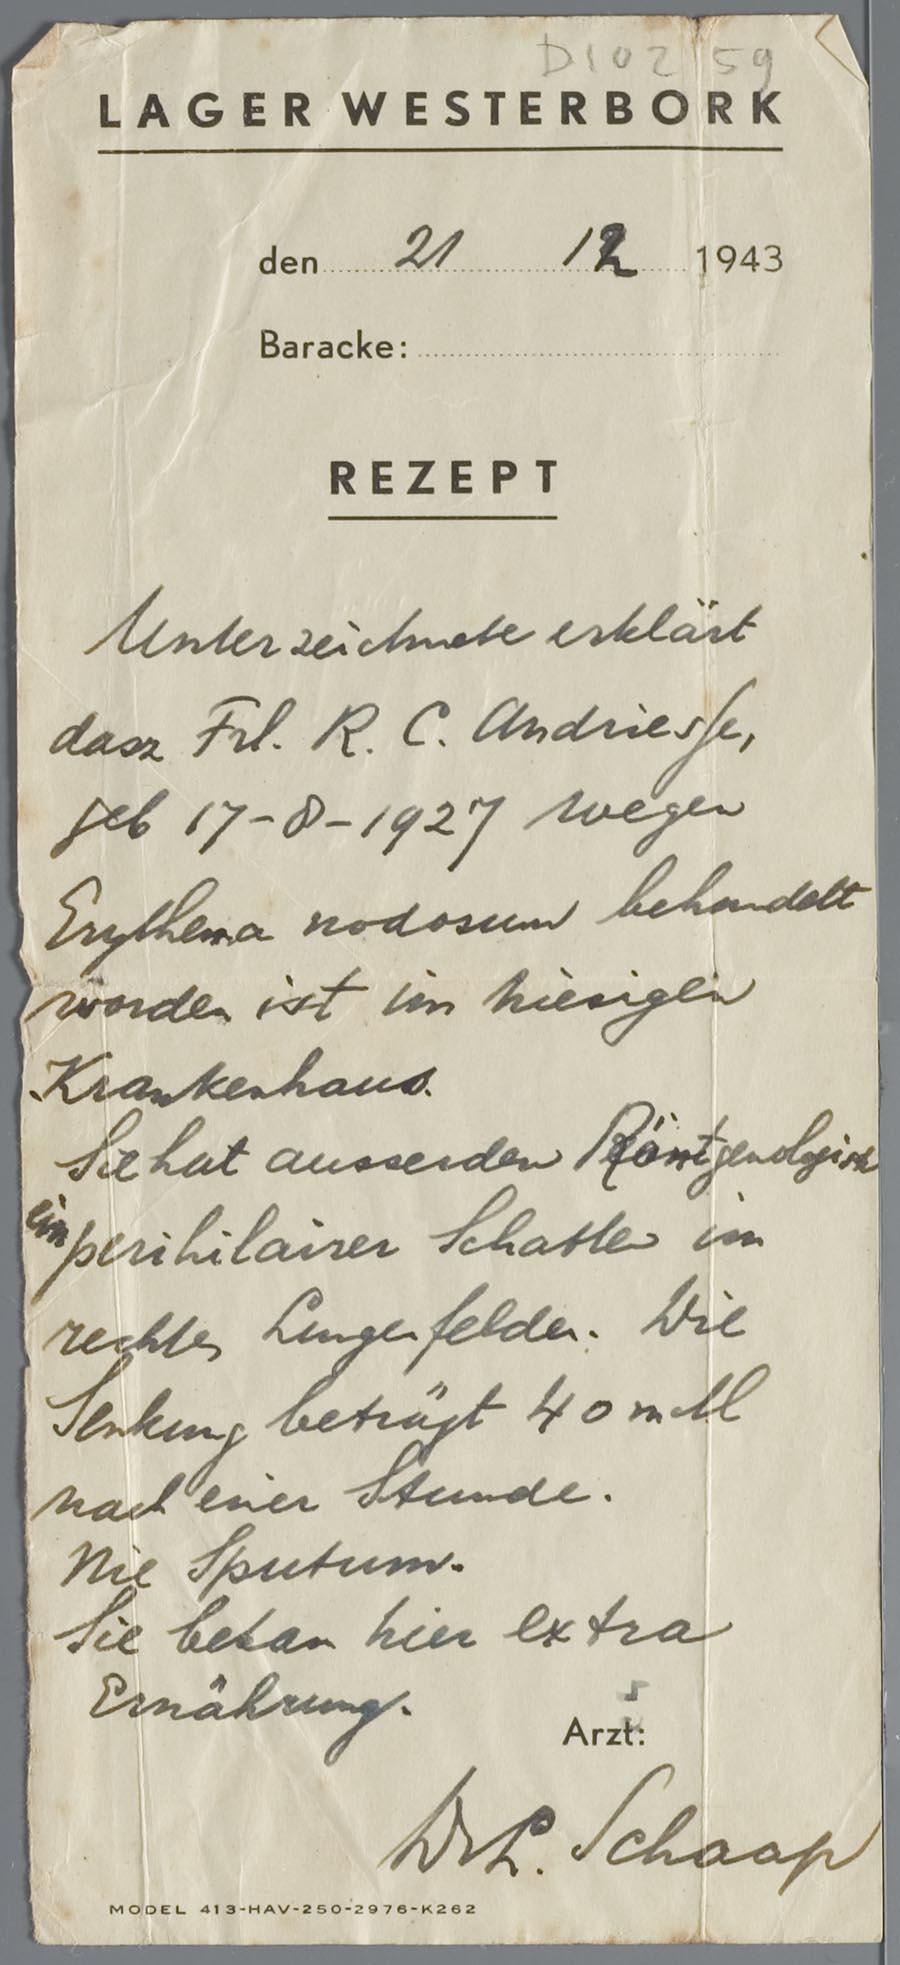 D102 59
LAGER WESTERBORK
den 21 12 1943
Baracke:
REZEPT
Unterzeichnete erklärt
dasz Frl. R. C. Andriesse,
geb 17-8-1927 wegen
Erythema nodosum behandelt
worden ist im hiesigen
Krankenhaus.
Sie hat ausserdem Röntgenologisch
ein perihilairer Schatten im
rechten Lungenfelder. Die
Senkung beträgt 40 mM
nach einer Stunde.
Nie Sputum.
Sie bekam hier extra
Ernährung.
Arzt:
Dr L. Schaap
MODEL 413-HAV-250-2976-K262